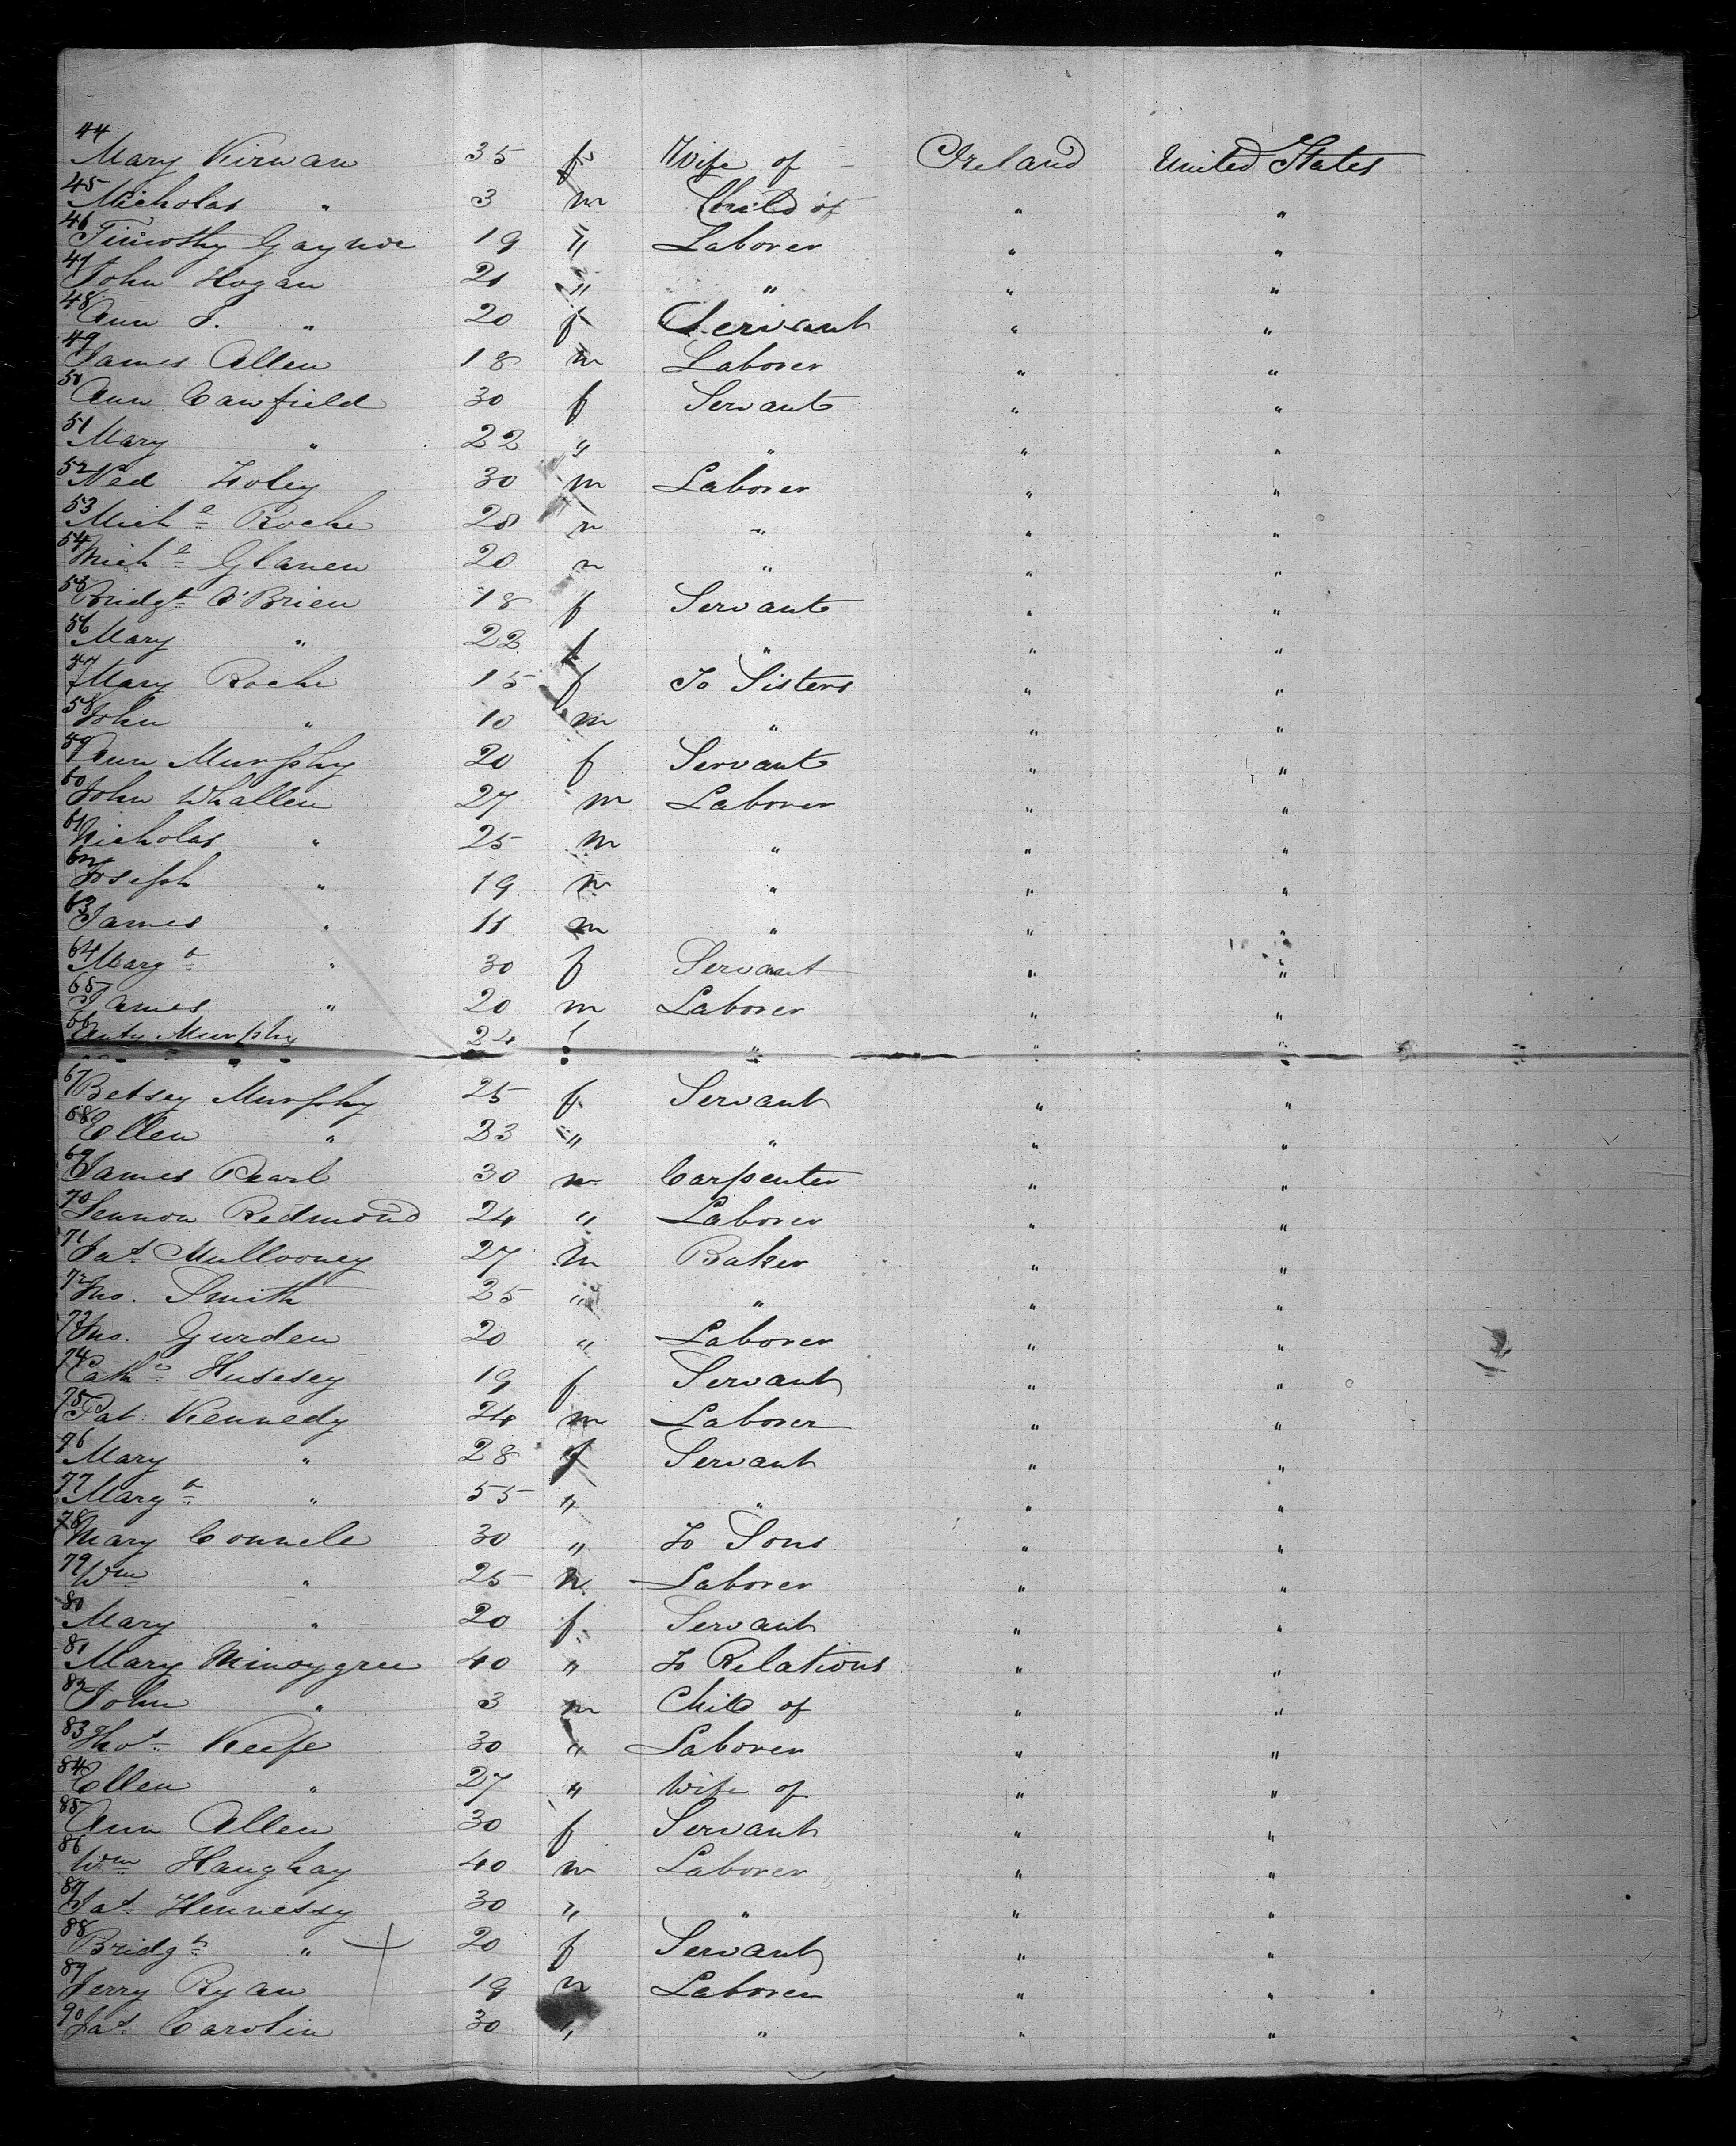 44 Mary Kirwan 35 f Wife of - Ireland United States
45 Nicholas " 3 m Child of " "
46 Timothy Gaynor 19 " Laborer " "
47 John Hogan 21 " " " "
48 Ann J. " 20 f Servant " "
49 James Allen 18 m Laborer " "
50 Ann Cawfield 30 f Servant " "
51 Mary " 22 " " " "
52 Ned Foley 30 m Laborer " "
53 Michl Roche 28 " " " "
54 Michl Glanen 20 " " " "
55 Bridgt O'Brien 18 f Servant " "
56 Mary " 22 f " " "
57 Mary Roche 15 f To Sisters " "
58 John " 10 m " " "
59 Ann Murphy 20 f Servant " "
60 John Whallen 27 m Laborer " "
61 Nicholas " 25 m " " "
62 Joseph " 19 m " " "
63 James " 11 m " " "
64 Margt " 30 f Servant " "
65 James " 20 m Laborer " "
66 Murphy 24 " " "
67 Betsey Murphy 25 f Servant " "
68 Ellen " 23 " " " "
69 James Pearl 30 m Carpenter " "
70 Lennon Redmond 24 " Laborer " "
71 Pat Mullooney 27 m Baker " "
72 Jno. Smith 25 " " " "
73 Jno. Gurden 20 " Laborer " "
74 Cathe Hussey 19 f Servant " "
75 Pat. Kennedy 24 m Laborer " "
76 Mary " 28 f Servant " "
77 Margt " 55 " " " "
78 Mary Connele 30 " To Sons " "
79 Wm " 25 m Laborer " "
80 Mary " 20 f Servant " "
81 Mary Minoygree 40 " To Relations " "
82 John " 3 m Child of " "
83 Thos Keefe 30 " Laborer " "
84 Ellen " 27 " Wife of " "
85 Ann Allen 30 f Servant " "
86 Wm Haughay 40 m Laborer " "
87 Pat Hennessy 30 " " " "
88 Bridgt " 20 f Servant " "
89 Jerry Ryan 19 m Laborer " "
90 Pat Carolin 30 " " " "